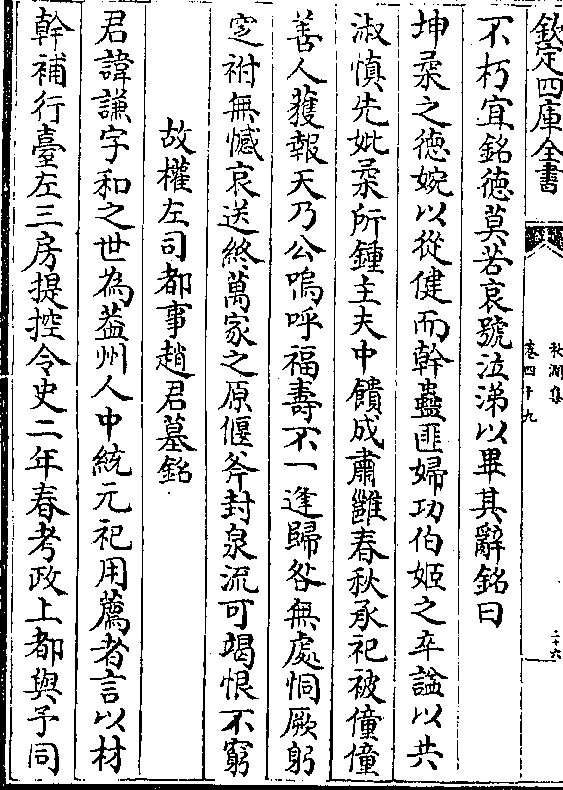 欽定四庫全書
秋澗集
卷四十九
二十六
不朽宜銘德莫若哀號泣涕以畢其辭銘曰
坤柔之德婉以從健而幹蠱匪婦功伯姬之卒諡以共
淑慎先妣柔所鍾主夫中饋成肅雝春秋承祀被僮僮
善人獲報天乃公嗚呼福壽不一逢歸咎無處恫厥躬
窆祔無憾哀送終萬家之原偃斧封泉流可竭恨不窮
故權左司都事趙君墓銘
君諱謙字和之世為葢州人中統元祀用薦者言以材
幹補行臺左三房提控令史二年春考政上都與予同